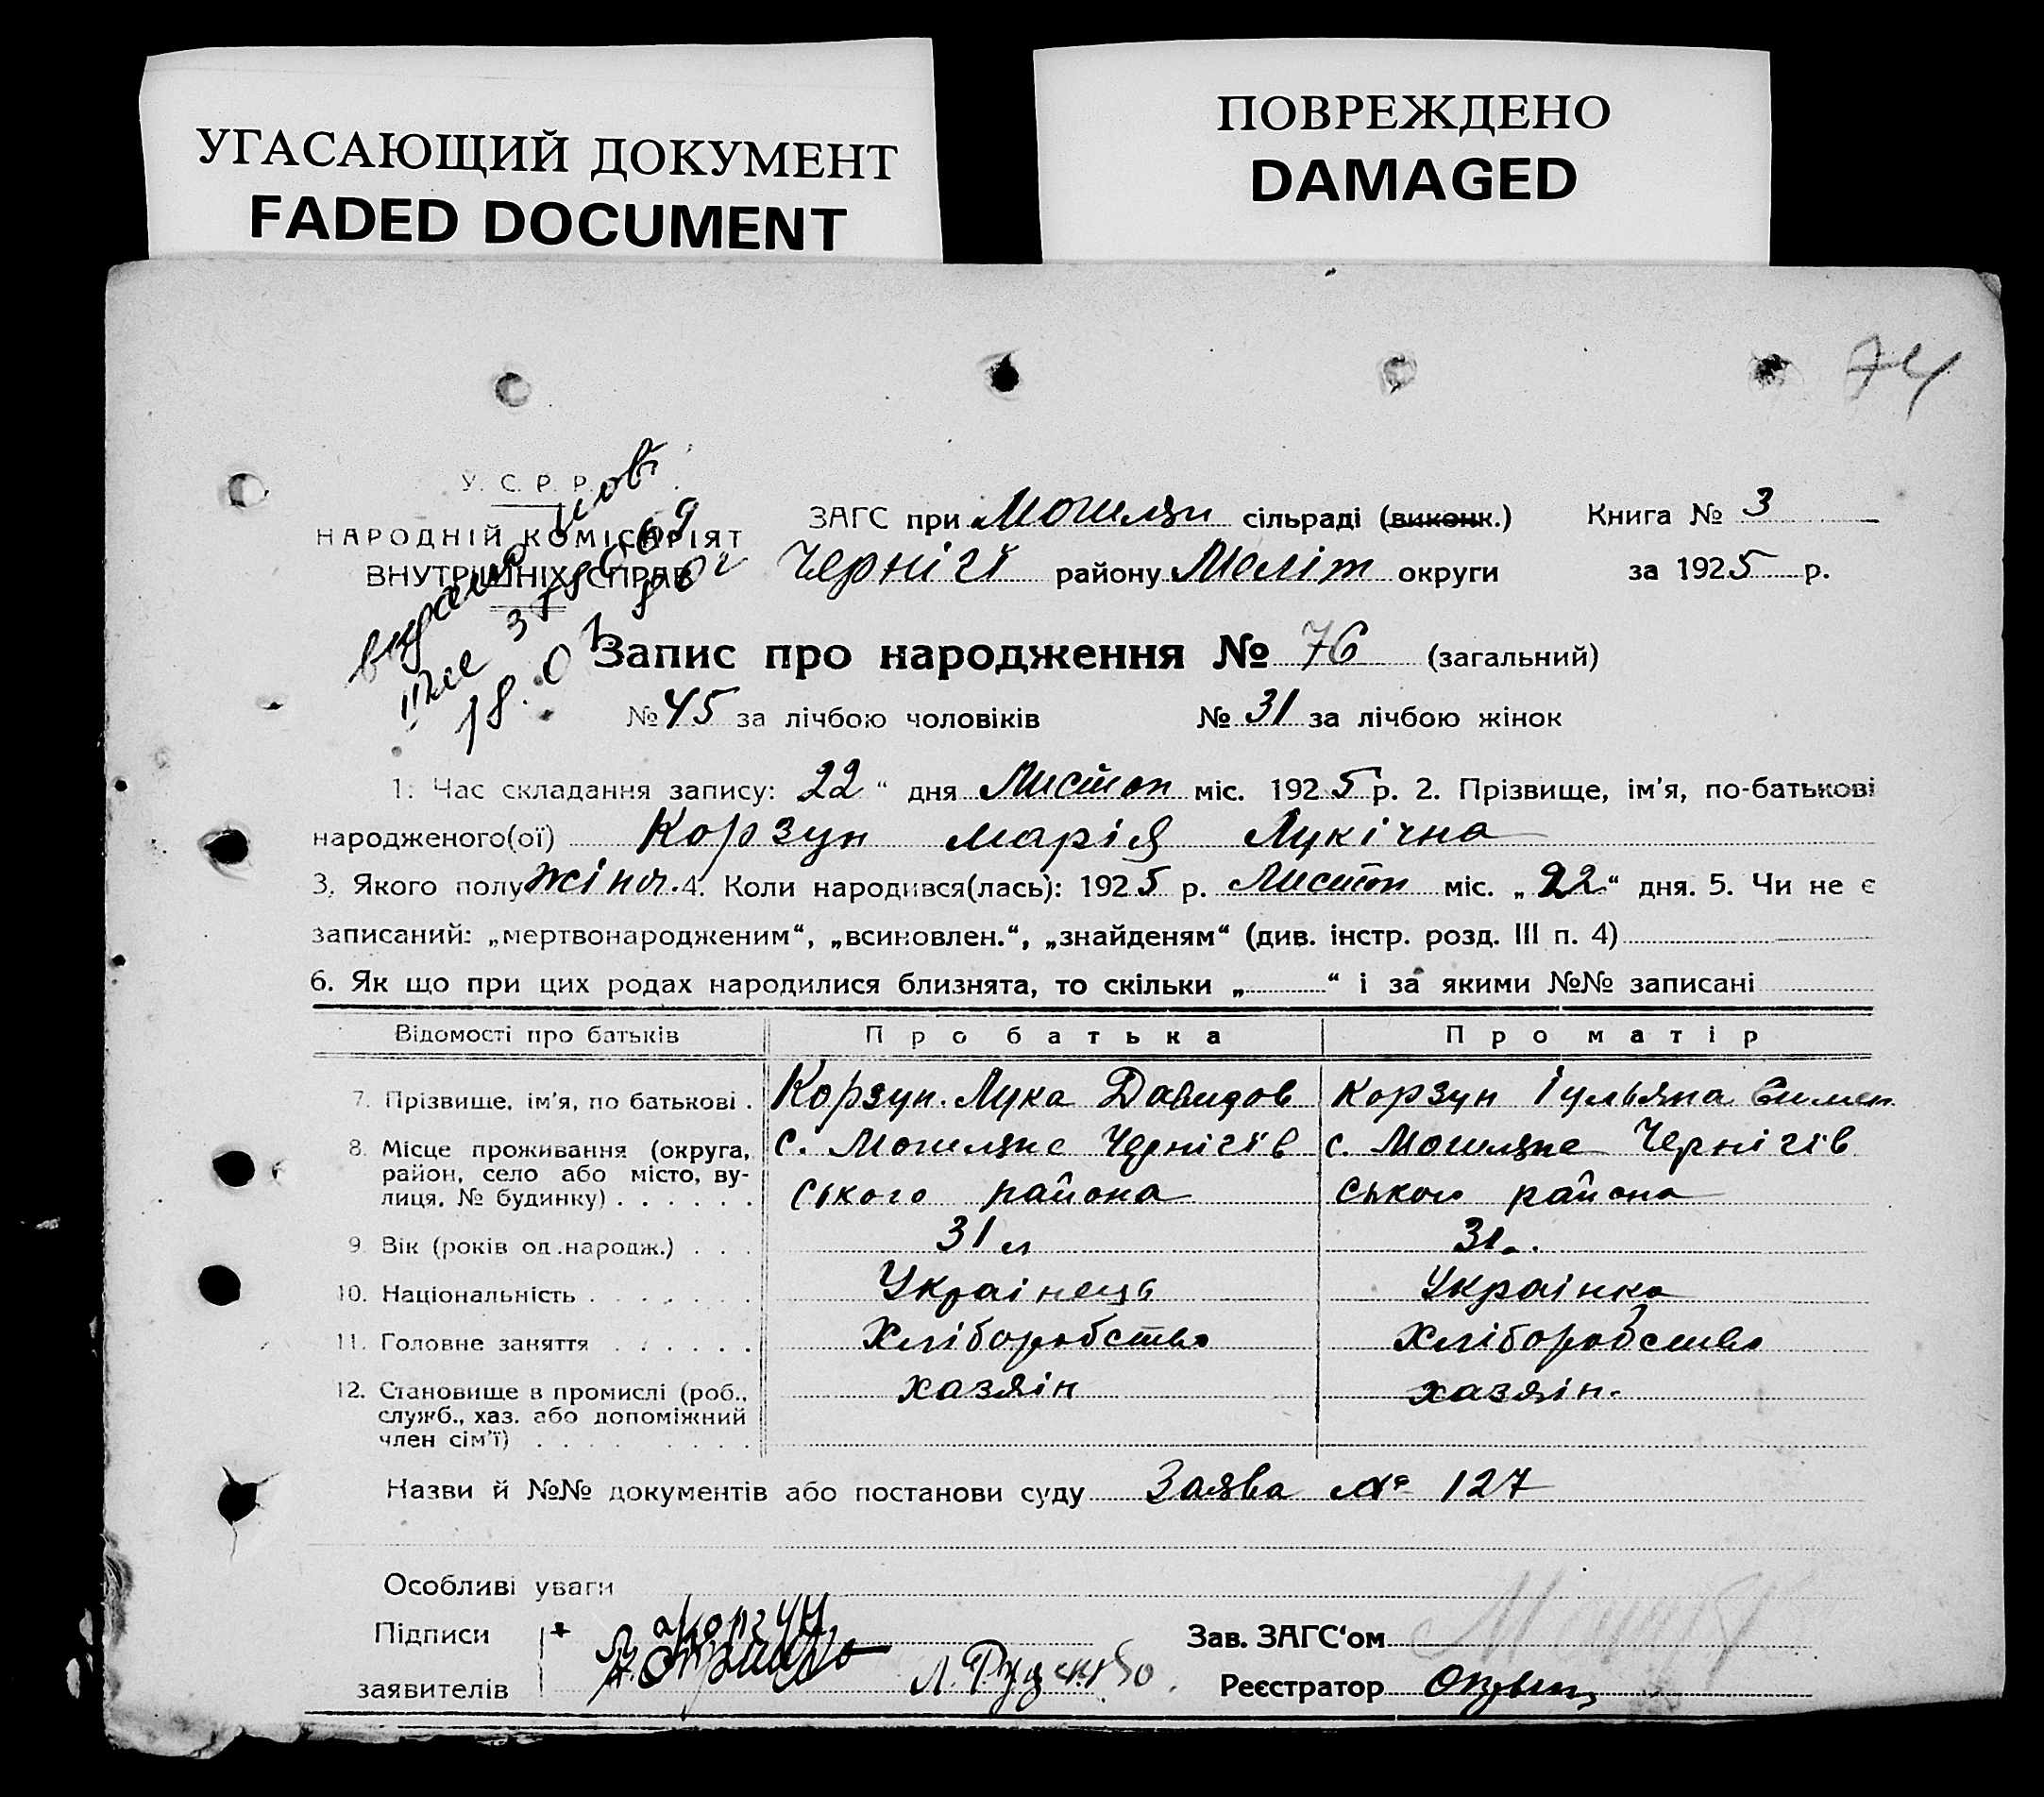 УГАСАЮЩИЙ ДОКУМЕНТ
FADED DOCUMENT
ПОВРЕЖДЕНО
DAMAGED
74
У. С. Р. Р.
НАРОДНІЙ КОМІСАРІЯТ
ВНУТРІШНІХ СПРАВ
видано пов
18.0
ЗАГС при Могиляни сільраді (виконк.) Книга № 3
Чернігі району Меліт округи за 1925 р.
Запис про народження № 76 (загальний)
№ 45 за лічбою чоловіків № 31 за лічбою жінок
1. Час складання запису: 22 “ дня Листоп міс. 1925 р. 2. Прізвище, ім'я, по-батькові
народженого(ої) Корзун Марія Лукічна
3. Якого полу жіноч. 4. Коли народився(лась): 1925 р. Листоп міс. „22“ дня. 5. Чи не є
записаний: „мертвонародженим“, „всиновлен.“, „знайденям“ (див. інстр. розд. III п. 4)
6. Як що при цих родах народилися близнята, то скільки „ “ і за якими №№ записані
Відомості про батьків Про батька Про матір
7. Прізвище, ім'я, по батькові . Корзун Лука Давидов Корзун Іульяна Симен
8. Місце проживання (округа, район, село або місто, вулиця, № будинку) . . . . . . с. Могиляне Чернігів ського района с. Могиляне Чернігів ського района
9. Вік (років од народж.) . . . 31 л 31 л.
10. Національність . . . . . . . Українець Українка
11. Головне заняття . . . . . . Хліборобство Хліборобство
12. Становище в промислі (роб., служб., хаз. або допоміжний член сім'ї) . . . . . . . . . хазяін хазяін.
Назви й №№ документів або постанови суду Заява № 127
Особливі уваги
Підписи Корзун Зав. ЗАГС‘ом
заявителів Л. Руденко Реєстратор